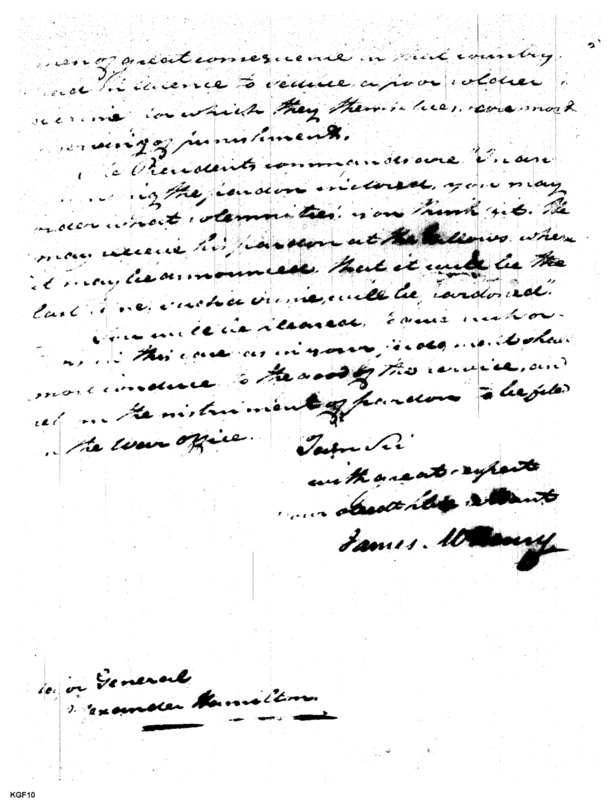 men of great consequence in that country
had influence to seduce a poor soldier
crime for which they themselves are most
deserving of punishment.
The Presidents commands are "In an
the pardon inclosed, you may
order what solemnities you think fit. He
may receive his pardon at the Gallows where
it may be announced that it will be the
last time such a crime will be pardoned".
You will be pleased, Sir,
in this case as in your judgment shall
most conduce to the good of the service, and
the instrument of pardon to be filed
in the War Office.
I am Sir
with great respect
your obedt Servant
James McHenry
Major General
Alexander Hamilton.
KGF10